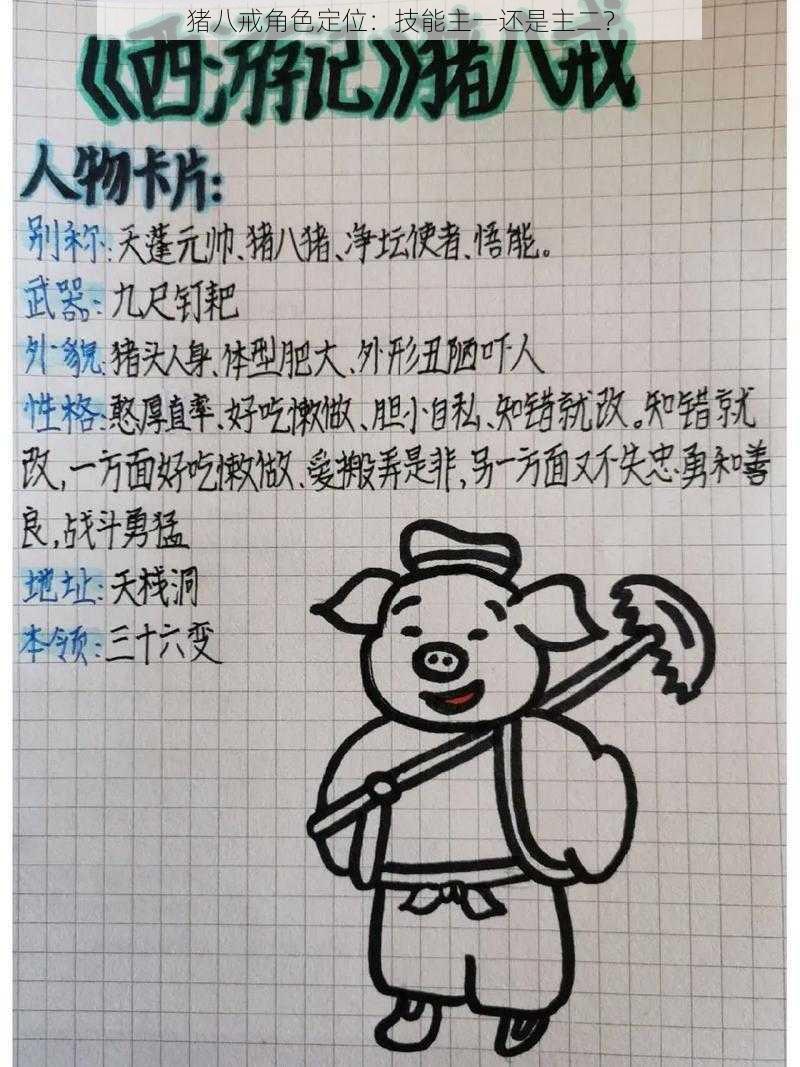 猪八戒角色定位：技能主一还是主二？
《西游记》猪八戒
人物卡片：
别称：天蓬元帅、猪八猪、净坛使者、悟能。
武器：九尺钉耙
外貌：猪头人身、体型肥大、外形丑陋吓人
性格：憨厚直率、好吃懒做、胆小自私、知错就改。知错就
改，一方面好吃懒做、爱搬弄是非，另一方面又不失忠勇和善
良，战斗勇猛
地址：天栈洞
本领：三十六变